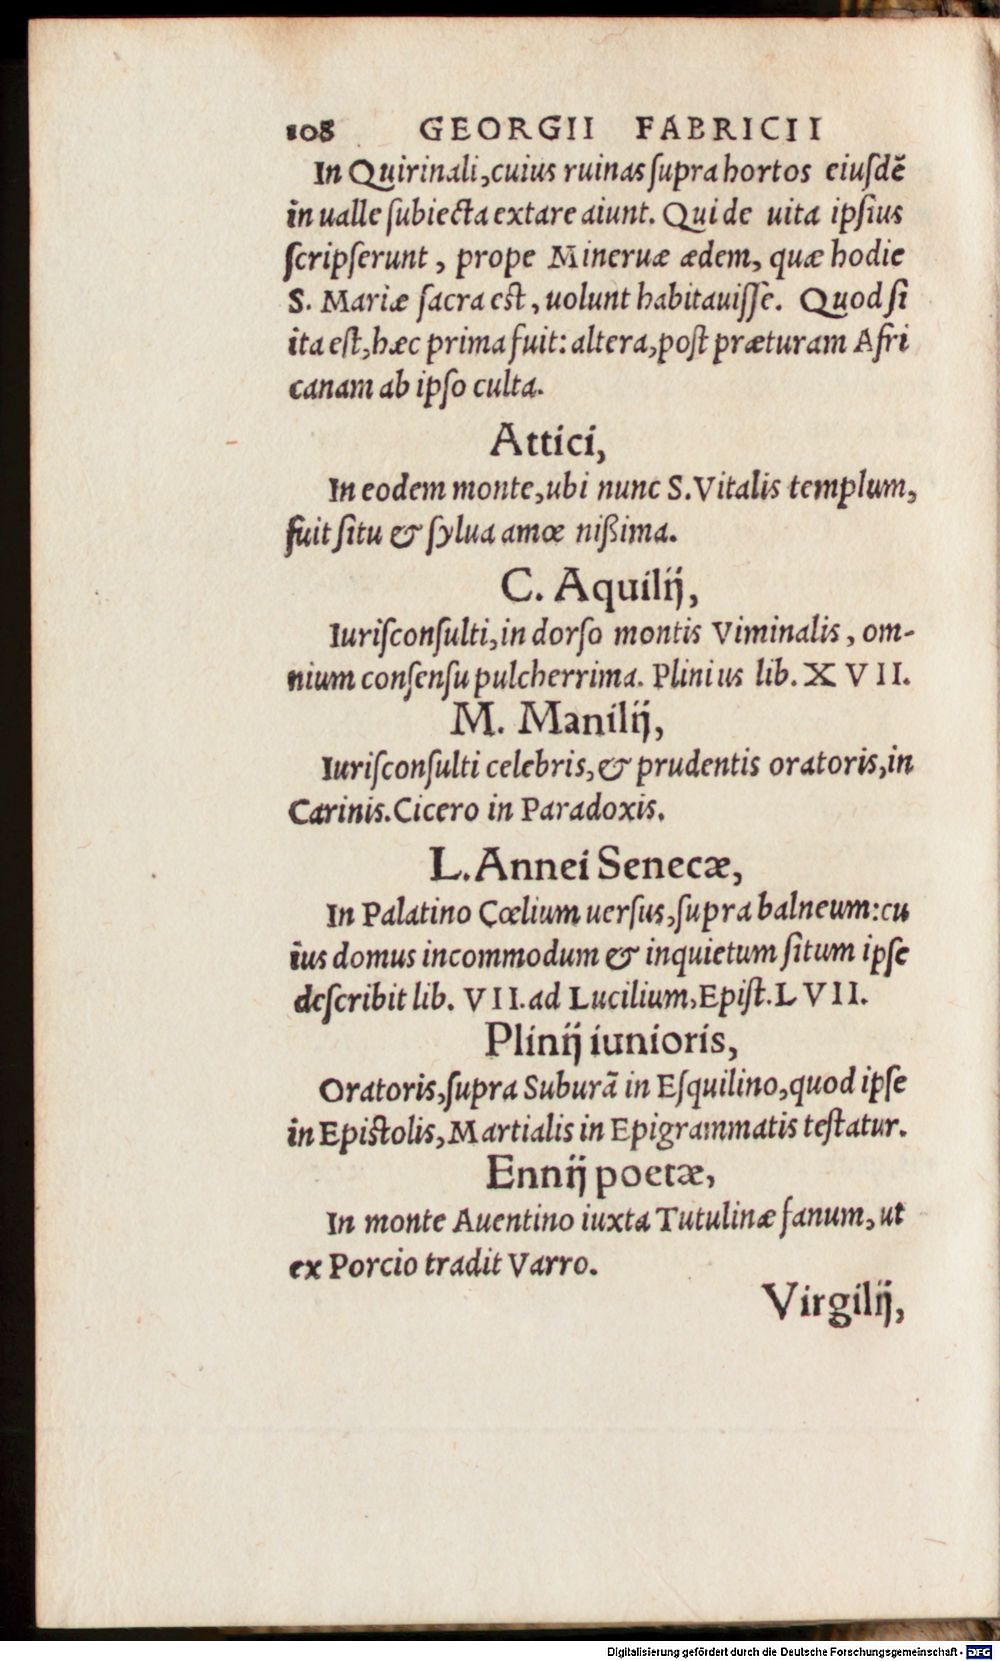 108 GEORGII FABRICII
In Quirinali, cuius ruinas ſupra hortos eiuſdẽ
in ualle ſubiecta extare aiunt. Qui de uita ipſius
ſcripſerunt, prope Mineruæ ædem, quæ hodie
S. Mariæ ſacra eſt, uolunt habitauiſſe. Quod ſi
ita eſt, hæc prima fuit: altera, poſt præturam Afri
canam ab ipſo culta.
Attici,
In eodem monte, ubi nunc S. Vitalis templum,
fuit ſitu & ſylua amœ nißima.
C. Aquilij,
Iuriſconſulti, in dorſo montis Viminalis, om-
nium conſenſu pulcherrima. Plinius lib. XVII.
M. Manilij,
Iuriſconſulti celebris, & prudentis oratoris, in
Carinis. Cicero in Paradoxis.
L. Annei Senecæ,
In Palatino Cœlium uerſus, ſupra balneum: cu
ius domus incommodum & inquietum ſitum ipſe
deſcribit lib. VII. ad Lucilium, Epiſt. LVII.
Plinij iunioris,
Oratoris, ſupra Suburã in Eſquilino, quod ipſe
in Epiſtolis, Martialis in Epigrammatis teſtatur.
Ennij poetæ,
In monte Auentino iuxta Tutulinæ fanum, ut
ex Porcio tradit Varro.
Virgilij,
Digitalisierung gefördert durch die Deutsche Forschungsgemeinschaft - DFG